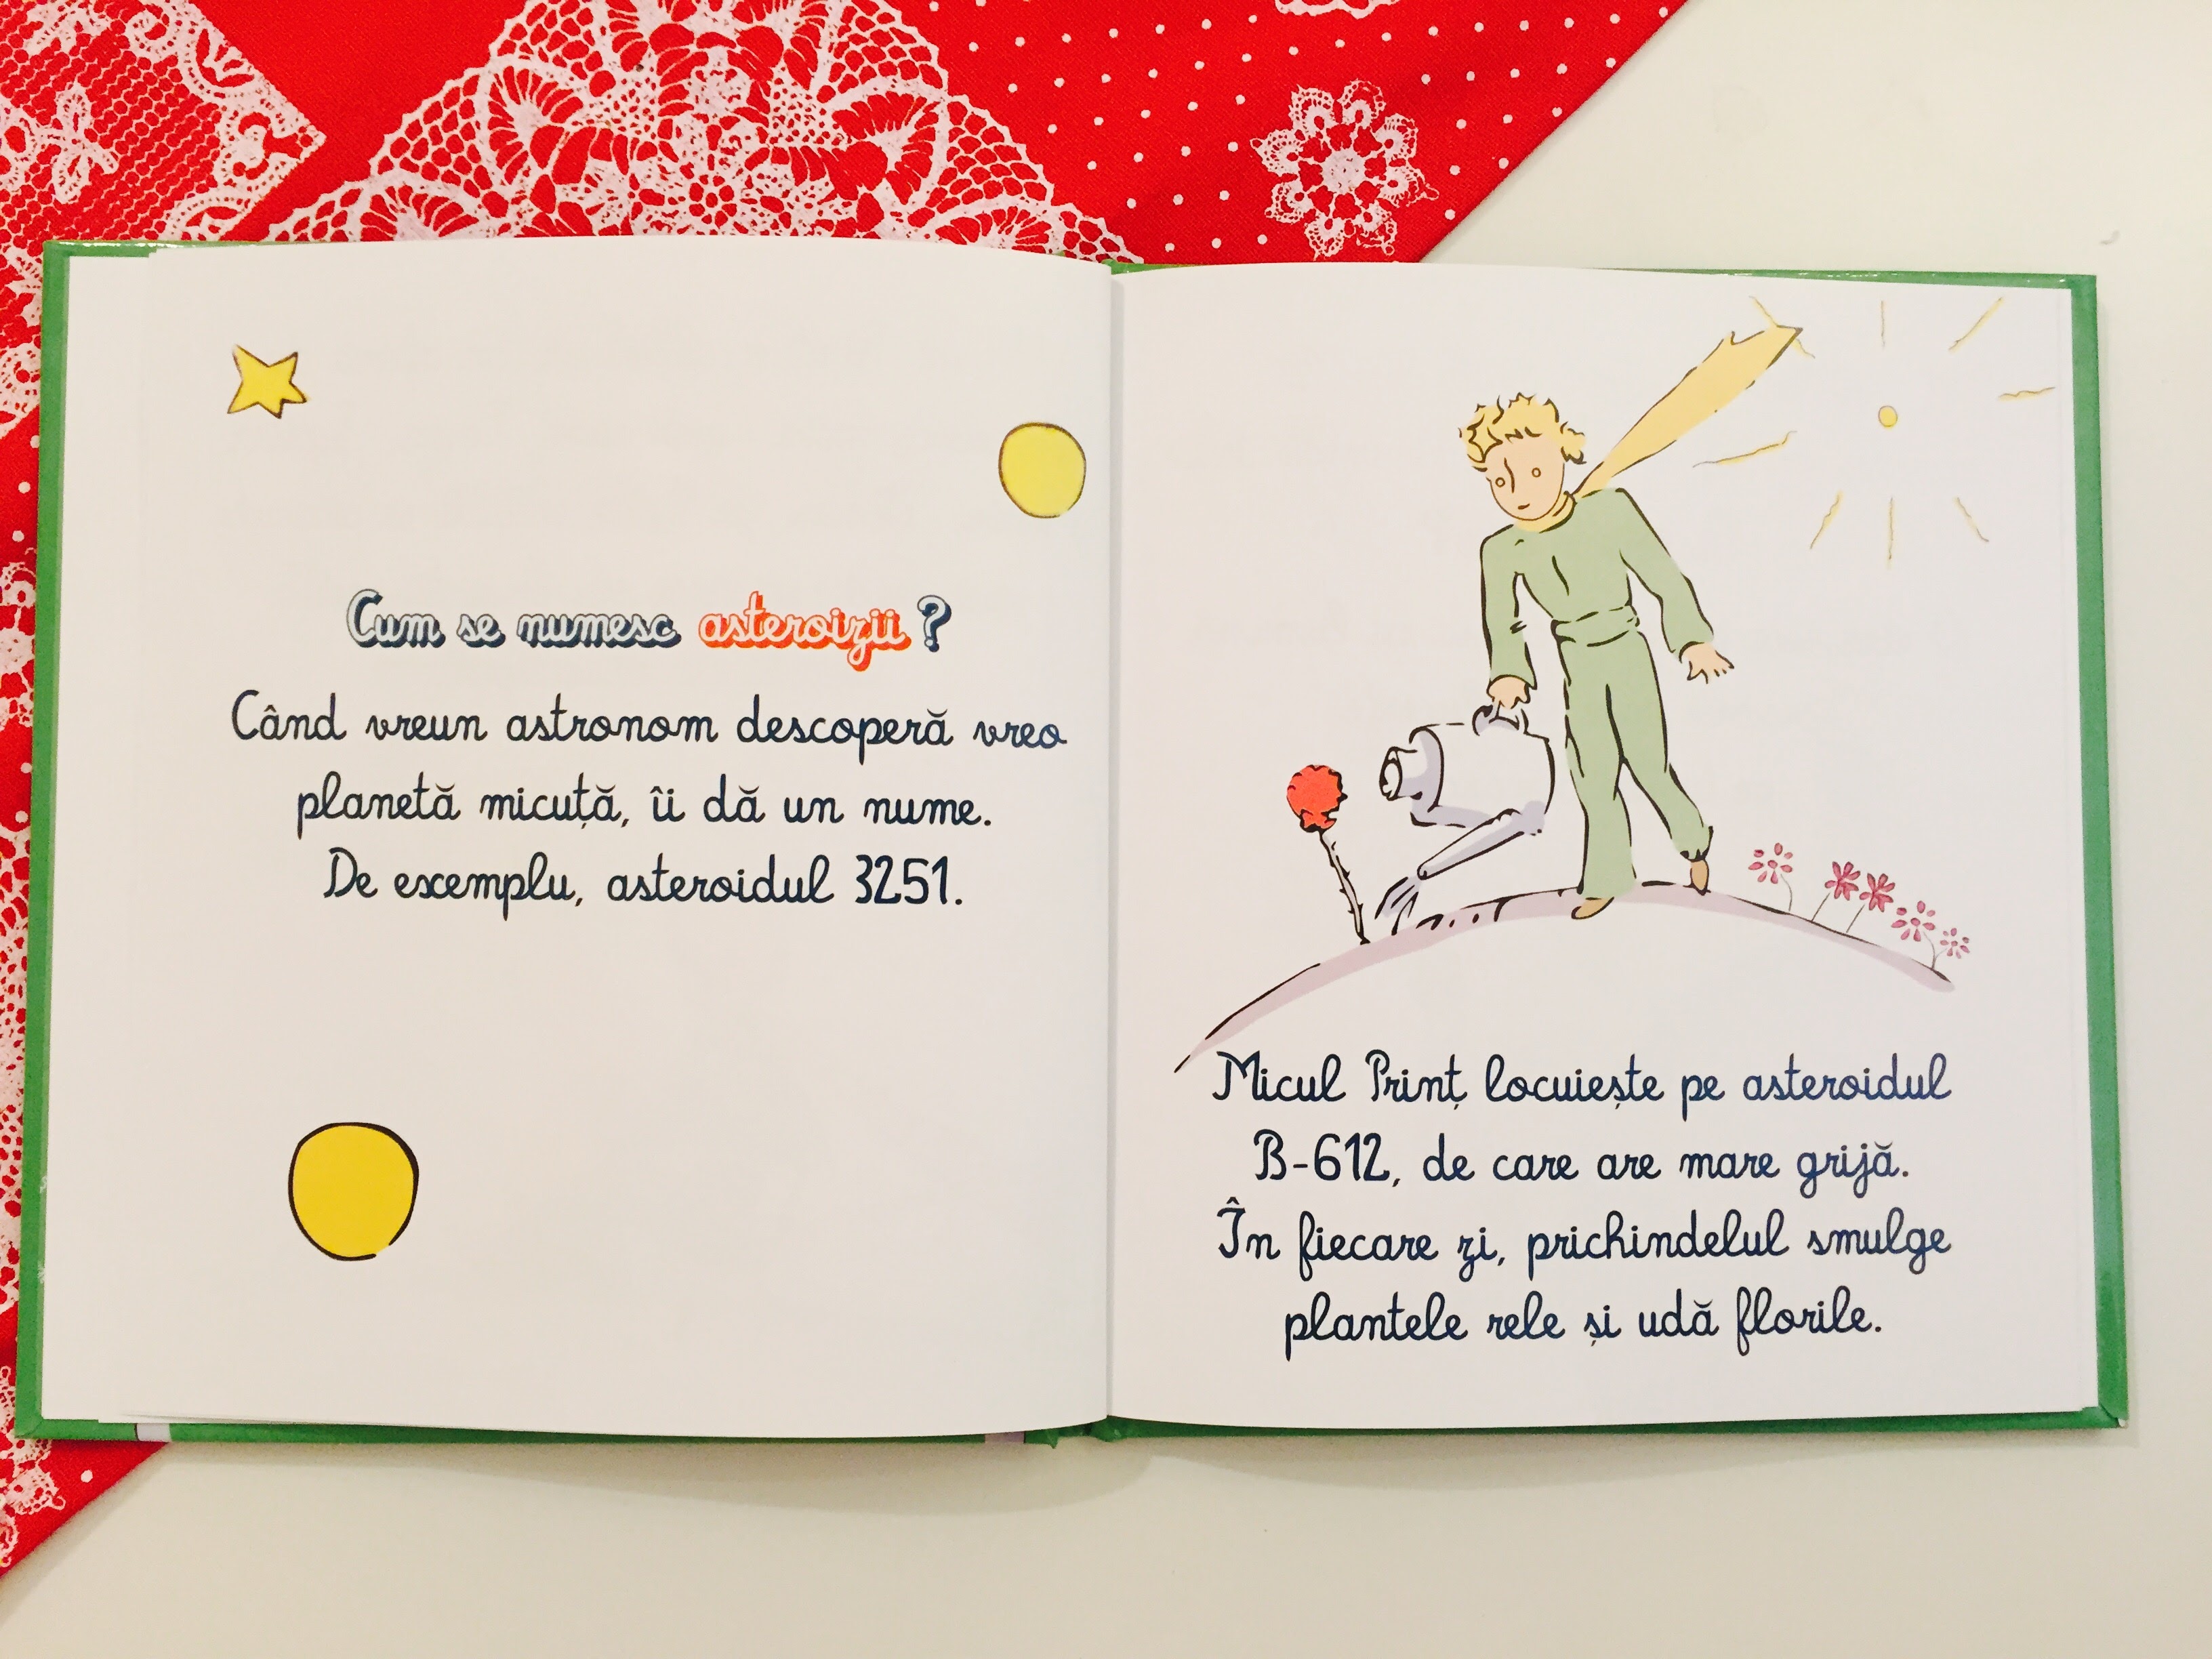 Cum se numesc asteroizii ?
Când vreun astronom descoperă vreo
planetă micuță, îi dă un nume.
De exemplu, asteroidul 3251.
Micul Prinț locuiește pe asteroidul
B-612, de care are mare grijă.
În fiecare zi, prichindelul smulge
plantele rele și udă florile.